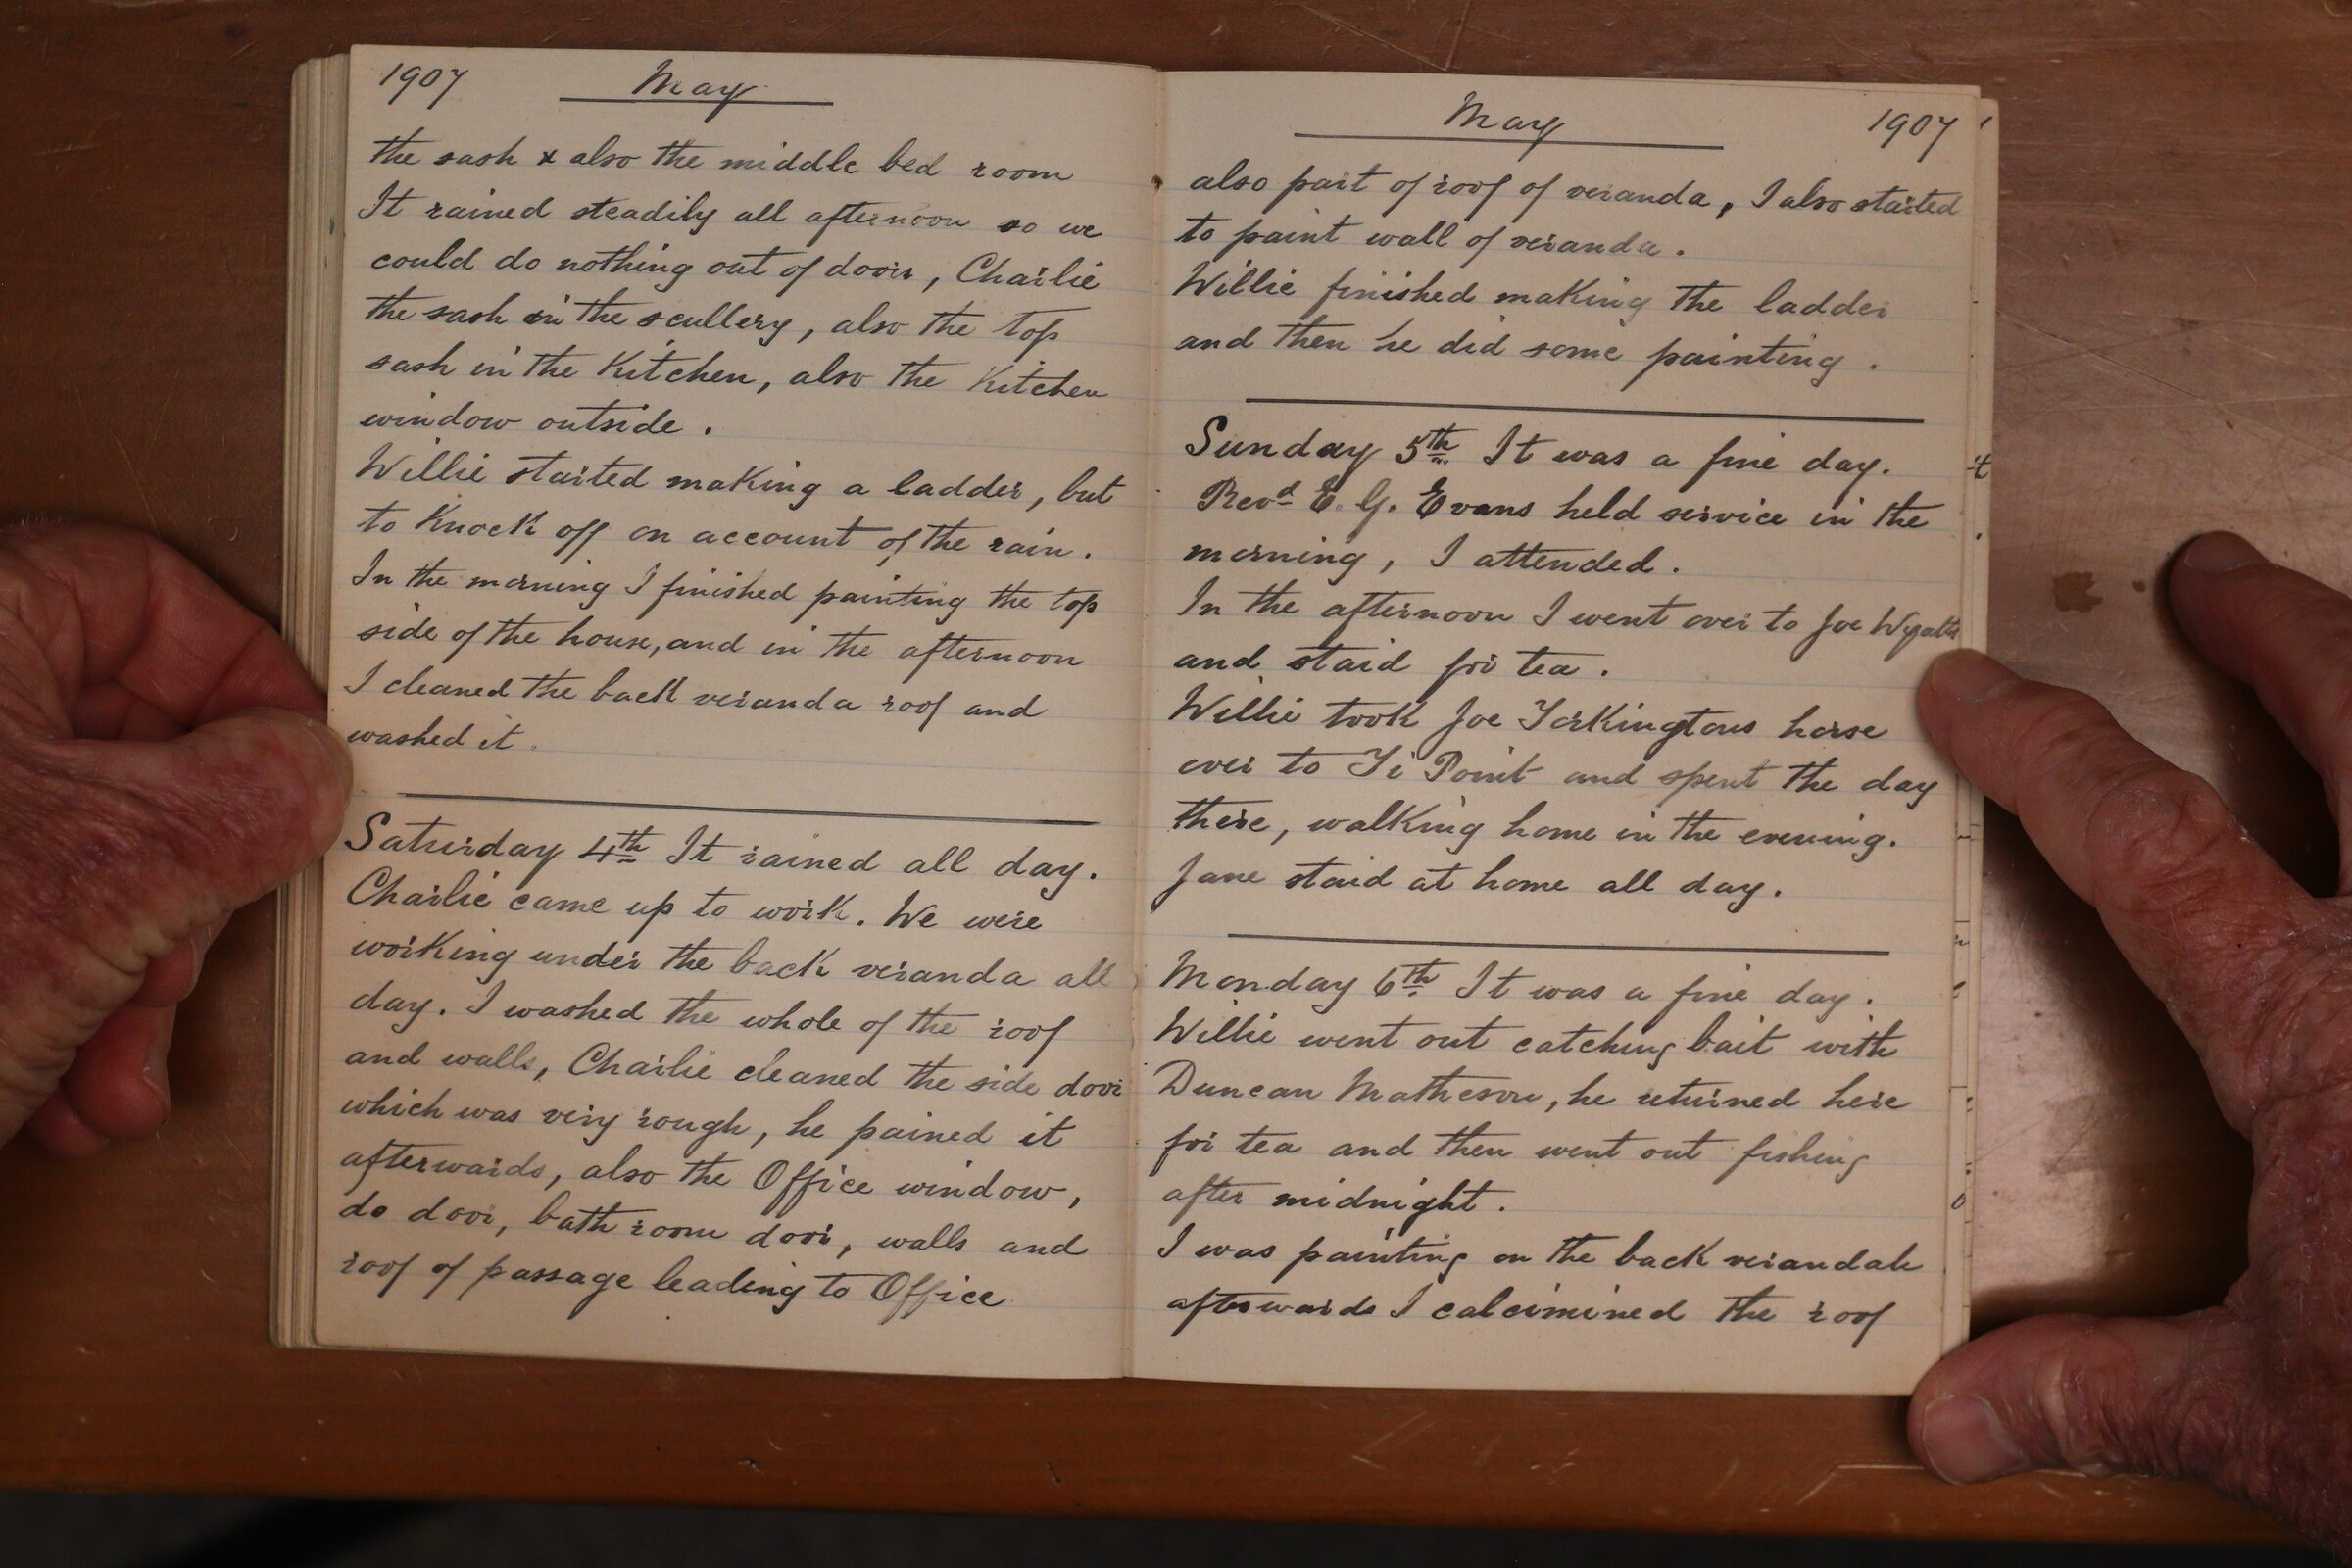 1907 May
the sash & also the middle bed room
It rained steadily all afternoon so we
could do nothing out of doors, Charlie
the sash in the scullery, also the top
sash in the Kitchen, also the Kitchen
window outside.
Willie started making a ladder, but
to Knock off on account of the rain.
In the morning I finished painting the top
side of the house, and in the afternoon
I cleaned the back veranda roof and
washed it.
Saturday 4th It rained all day.
Charlie came up to work. We were
working under the back veranda all
day. I washed the whole of the roof
and walls, Charlie cleaned the side door
which was very rough, he pained it
afterwards, also the Office window,
do door, bath room door, walls and
roof of passage leading to Office
May 1907
also part of roof of veranda, I also started
to paint wall of veranda.
Willie finished making the ladder
and then he did some painting.
Sunday 5th It was a fine day.
Revd E. G. Evans held service in the
morning, I attended.
In the afternoon I went over to Joe Wyatts
and staid for tea.
Willie took Joe Torkingtons horse
over to Ti Point and spent the day
there, walking home in the evening.
Jane staid at home all day.
Monday 6th It was a fine day.
Willie went out catching bait with
Duncan Matheson, he returned here
for tea and then went out fishing
after midnight.
I was painting on the back verandah
afterwards I calcimined the roof